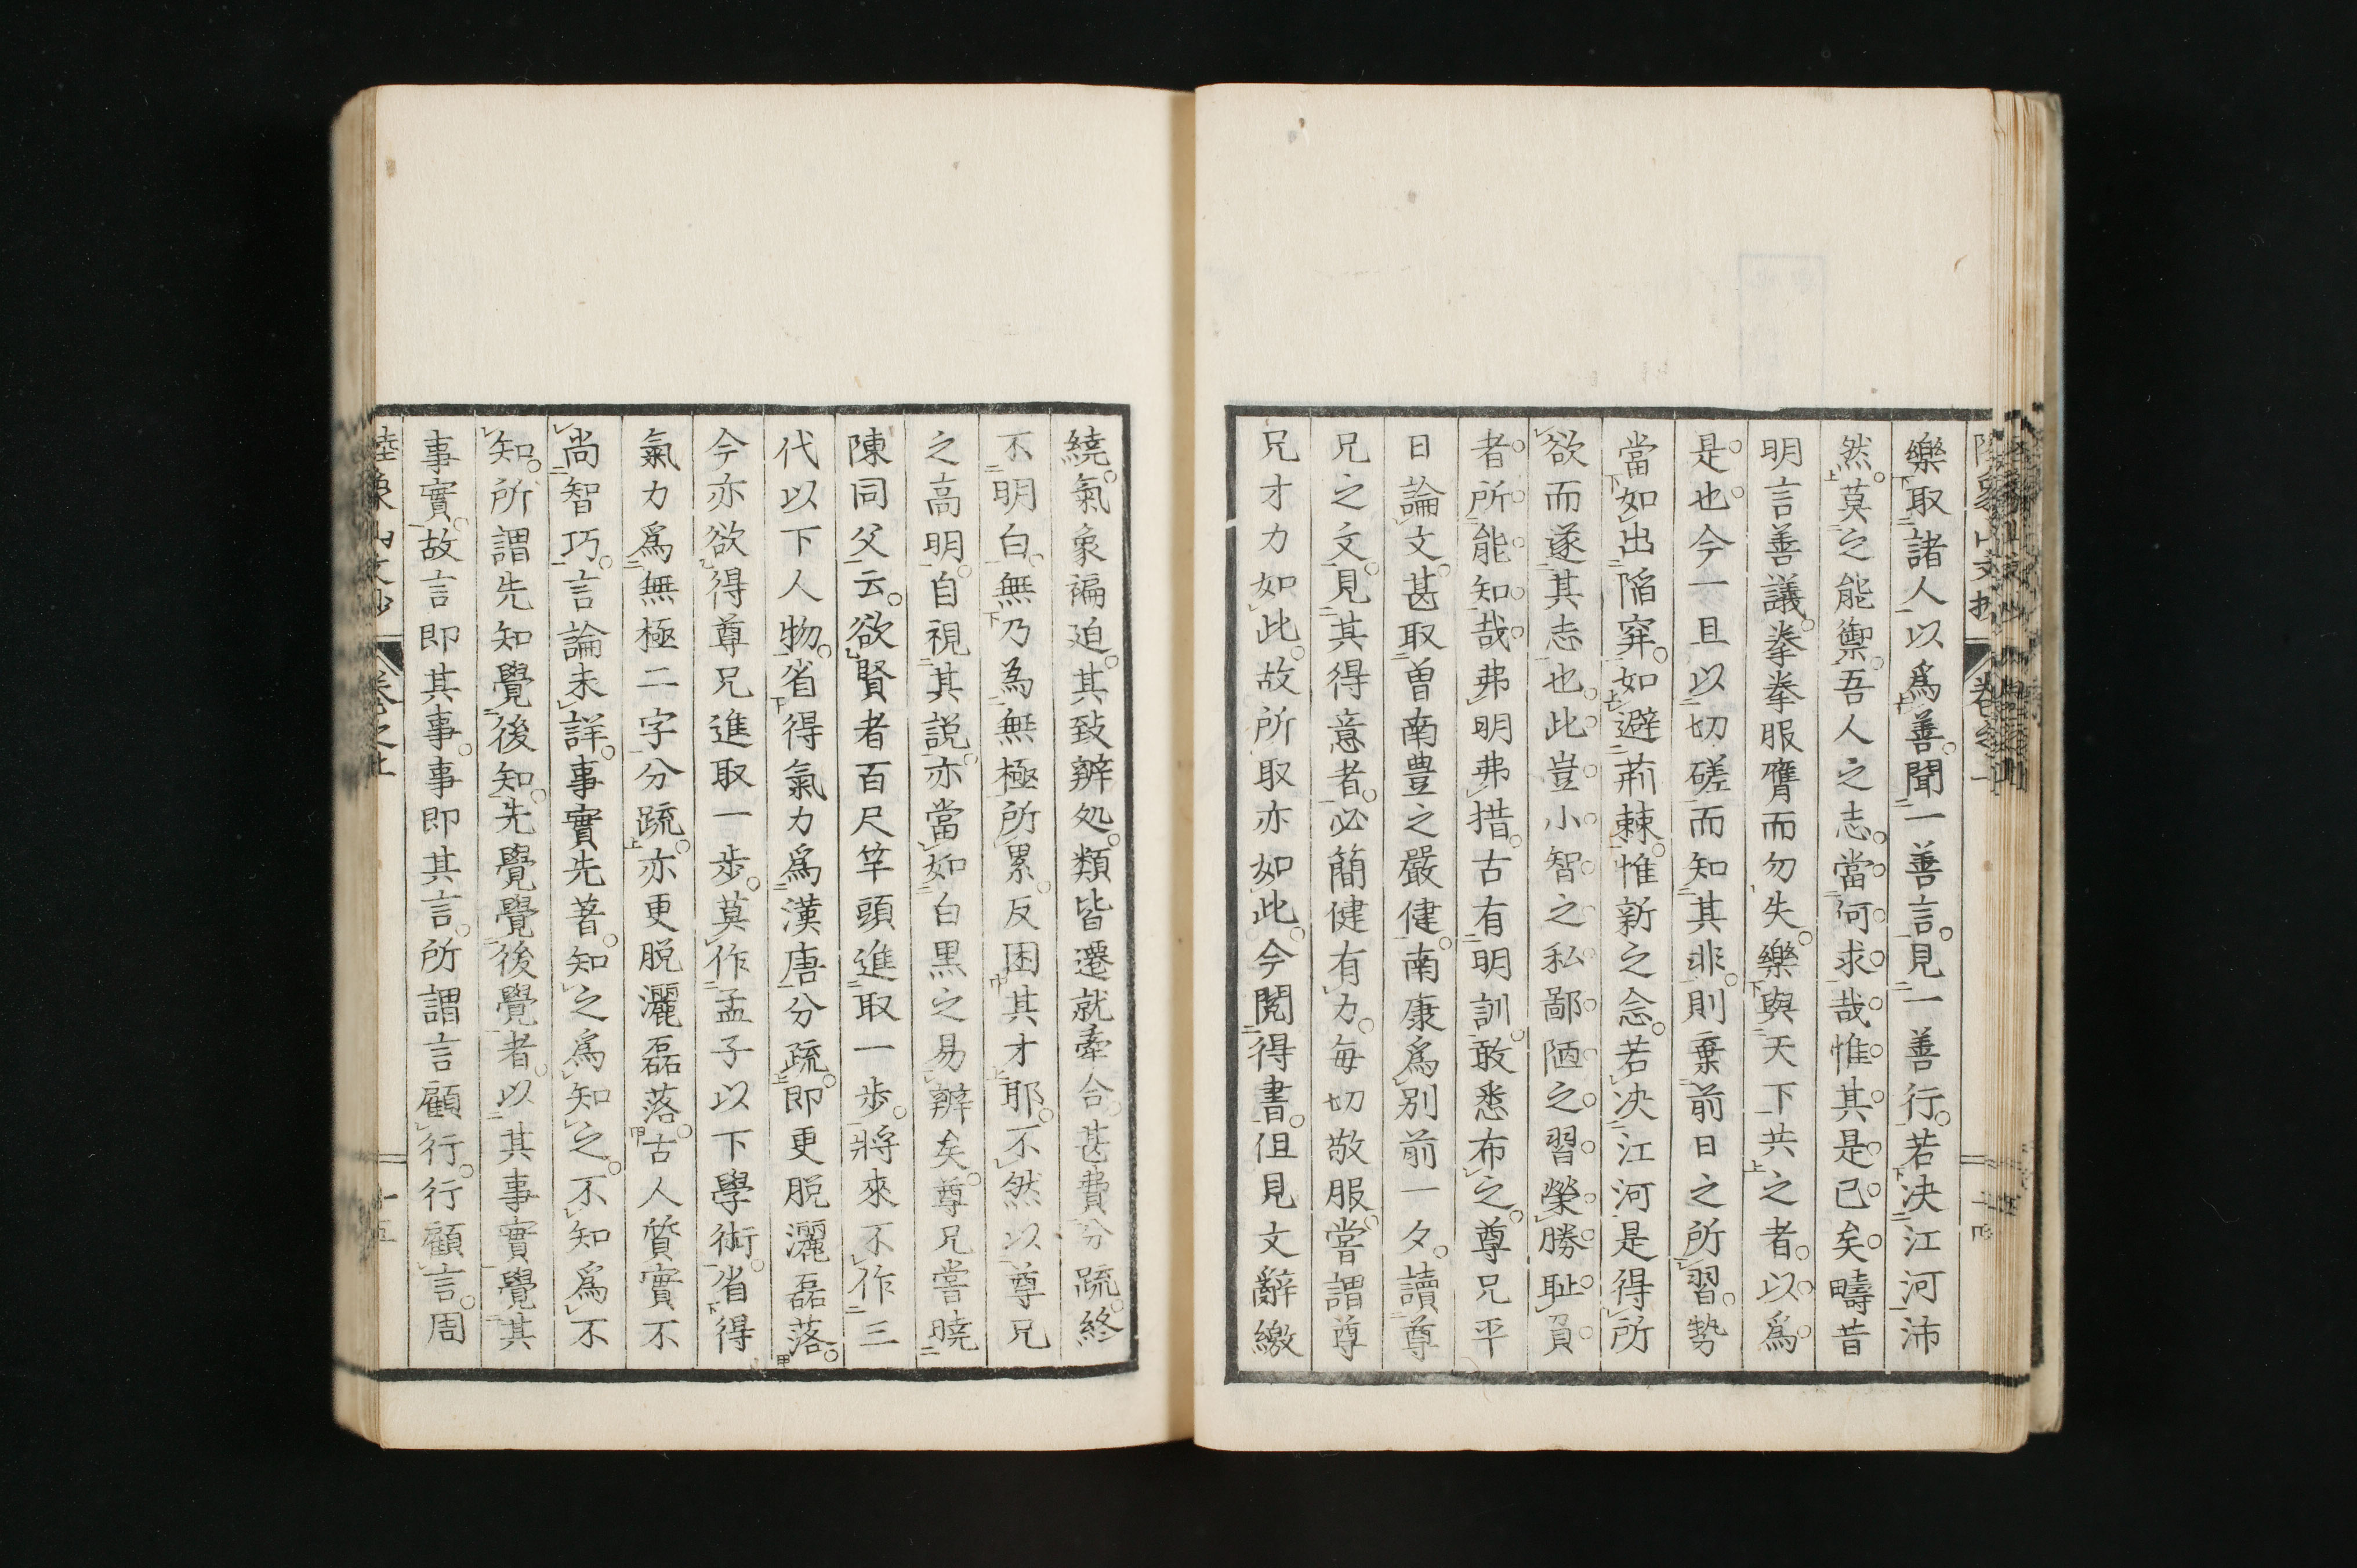 樂取諸人以爲善聞一善言見一善行若決江河沛
然莫之能禦吾人之志當何求哉惟其是已矣疇昔
明言善議拳拳服膺而勿失樂與天下共之者以爲
是也今一旦以切磋而知其非則棄前日之所習勢
當如出陷穽如避荊棘惟新之念若決江河是得所
欲而遂其志也此豈小智之私鄙陋之習榮勝耻負
者所能知哉弗明弗措古有明訓敢悉布之尊兄平
日論文甚取曽南豊之嚴健南康爲別前一夕讀尊
兄之文見其得意者必簡健有力毎切敬服嘗謂尊
兄才力如此故所取亦如此今閱得書但見文辭繳
繞氣象褊迫其致辨処類皆遷就牽合甚費分疏終
不明白無乃為無極所累反困其才耶不然以尊兄
之高明自視其説亦當如白黒之易辨矣尊兄嘗曉
陳同父云欲賢者百尺竿頭進取一歩將來不作三
代以下人物省得氣力爲漢唐分疏即更脱灑磊落
今亦欲得尊兄進取一歩莫作孟子以下學術省得
氣力爲無極二字分疏亦更脱灑磊落古人質實不
尚智巧言論未詳事實先著知之爲知之不知爲不
知所謂先知覺後知先覺覺後覺者以其事實覺其
事實故言即其事事即其言所謂言顧行行顧言周
陸象山文抄 卷之上 十五